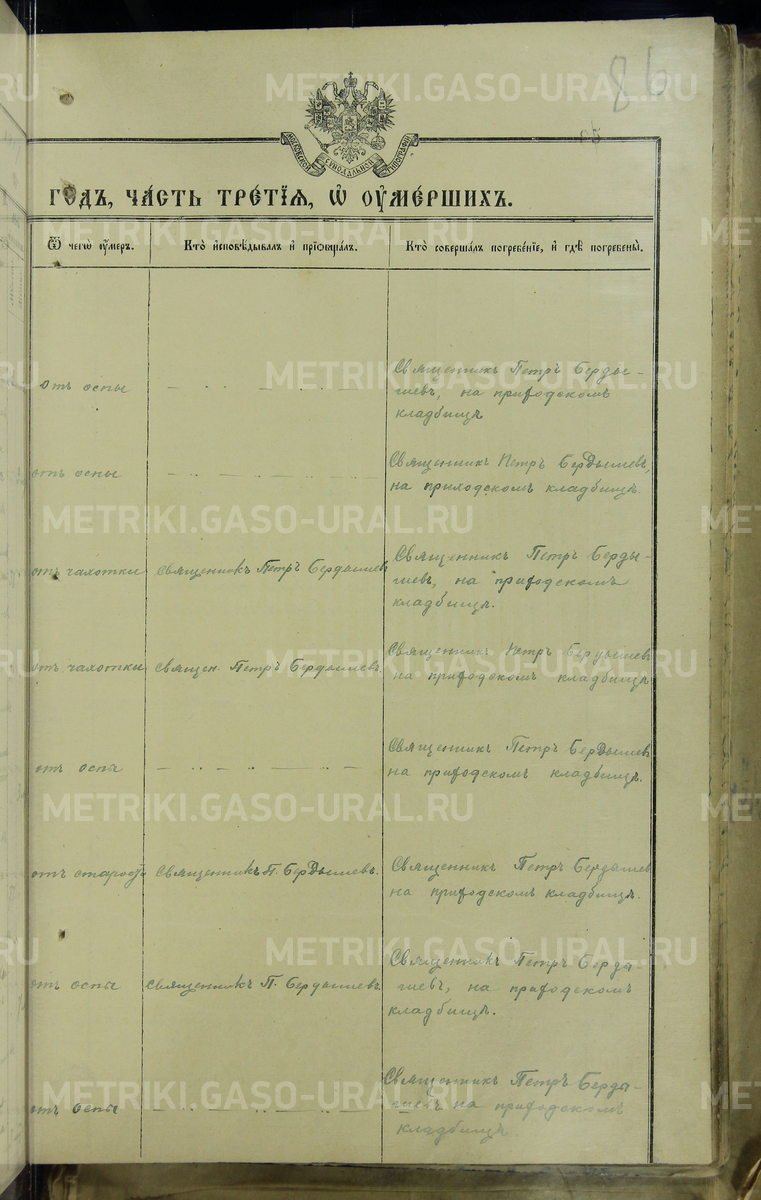 86
МОСКОВСКОЙ СѴНОДАЛЬНОЙ ТИПОГРАФІИ
ГОДЪ, ЧА́СТЬ ТРЕ́ТІЯ, Ѡ ОУ҆МЕ́РШИХЪ.
Ѿ чегѡ̀ оу҆́меръ.
Кто̀ и҆сповѣ́дывалъ и҆ прїѡбща́лъ.
Кто̀ соверша́лъ погребе́нїе, и҆ гдѣ̀ погребены̀.
отъ оспы
Священникъ Петръ Берды-
шевъ, на приходскомъ
кладбищѣ
отъ оспы
Священникъ Петръ Бердышевъ,
на приходскомъ кладбищѣ.
отъ чахотки
Священникъ Петръ Бердышевъ
Священникъ Петръ Берды-
шевъ, на приходскомъ
кладбищѣ.
отъ чахотки
Священ. Петръ Бердышевъ
Священникъ Петръ Бердышевъ
на приходскомъ кладбищѣ
отъ оспы
Священникъ Петръ Бердышевъ
на приходскомъ кладбищѣ.
отъ старости
Священникъ П. Бердышевъ.
Священникъ Петръ Бердышев
на приходскомъ кладбищѣ.
отъ оспы
Священникъ П. Бердышевъ
Священникъ Петръ Берды-
шевъ, на приходскомъ
кладбищѣ.
отъ оспы
Священникъ Петръ Берды-
шевъ на приходскомъ
кладбищѣ.
METRIKI.GASO-URAL.RU